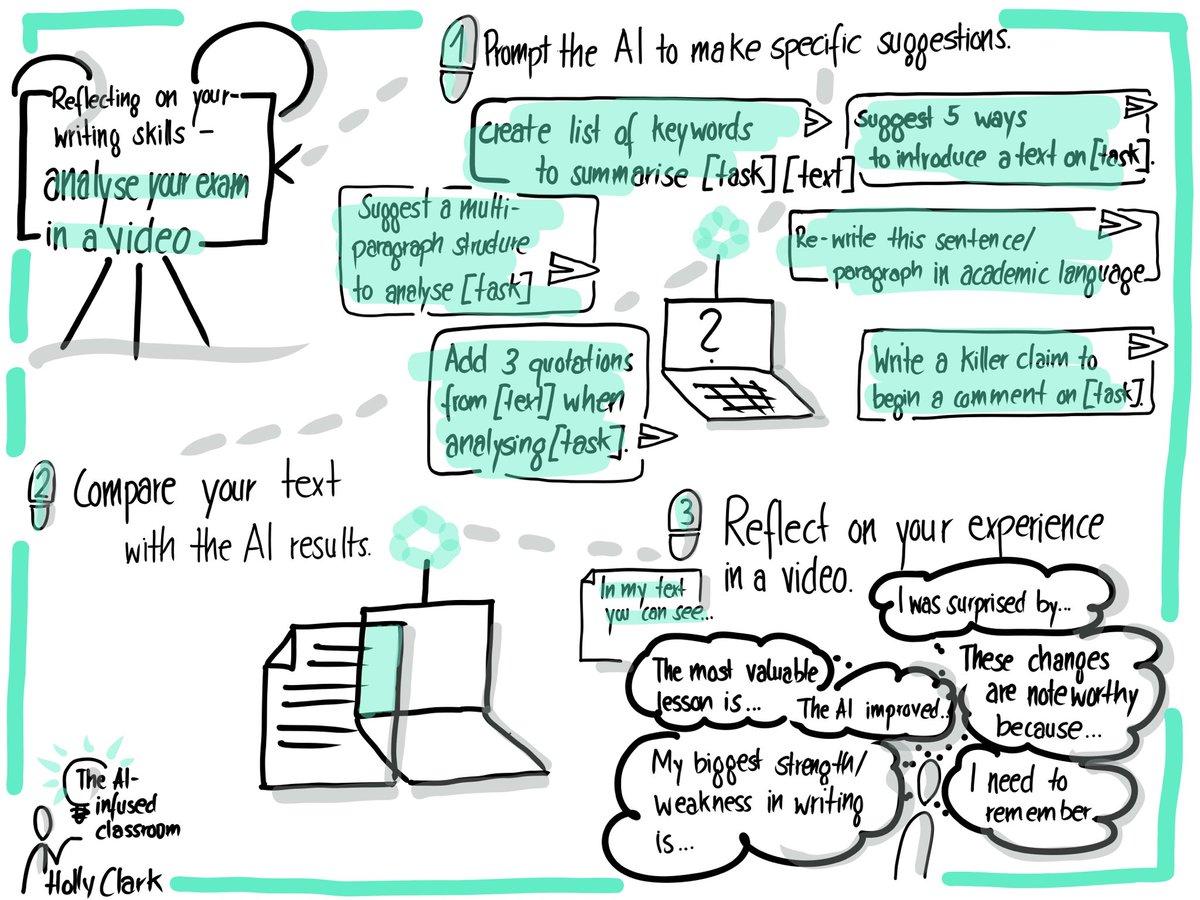 Reflecting on your-
writing skills -
analyse your exam
in a video
1 Prompt the AI to make specific suggestions.
create list of keywords
to summarise [task] [text]
Suggest 5 ways
to introduce a text on [task].
Suggest a multi-
paragraph structure
to analyse [task]
Re-write this sentence/
paragraph in academic language.
?
Add 3 quotations
from [text] when
analysing [task].
Write a killer claim to
begin a comment on [task].
2 Compare your text
with the AI results.
3 Reflect on your experience
in a video.
In my text
you can see...
I was surprised by...
The most valuable
lesson is...
The AI improved..
These changes
are noteworthy
because...
My biggest strength/
weakness in writing
is...
I need to
remember..
The AI-
infused
classroom
Holly Clark